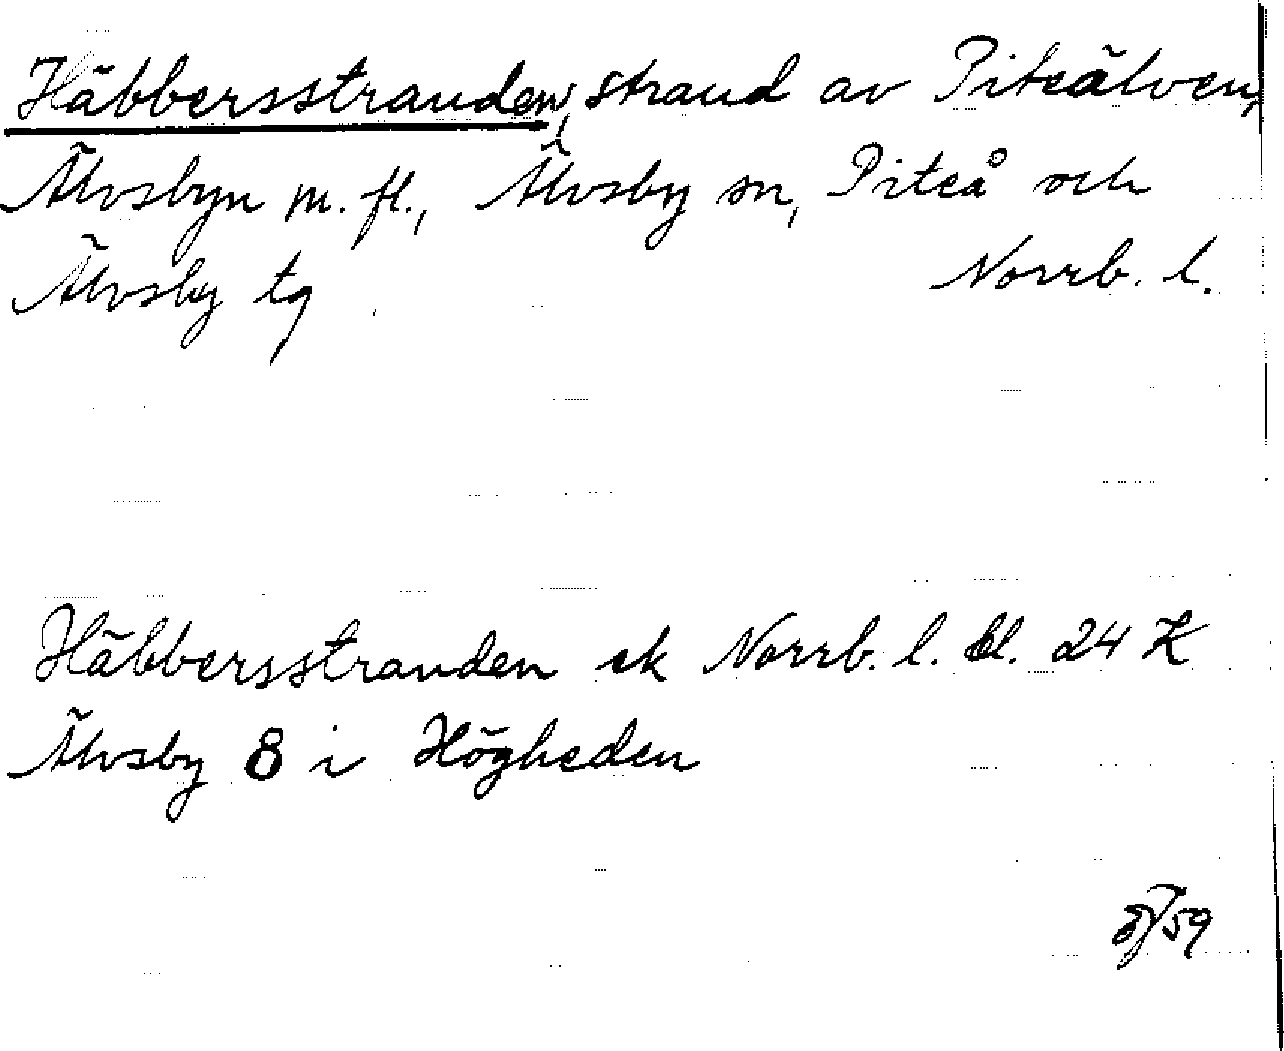 Häbbersstranden, strand av Piteälven,
Älvsbyn m. fl., Älvsby sn, Piteå och
Älvsby tg Norrb. l.
Häbbersstranden ek Norrb. l. bl. 24 K
Älvsby 8 i Högheden
/59